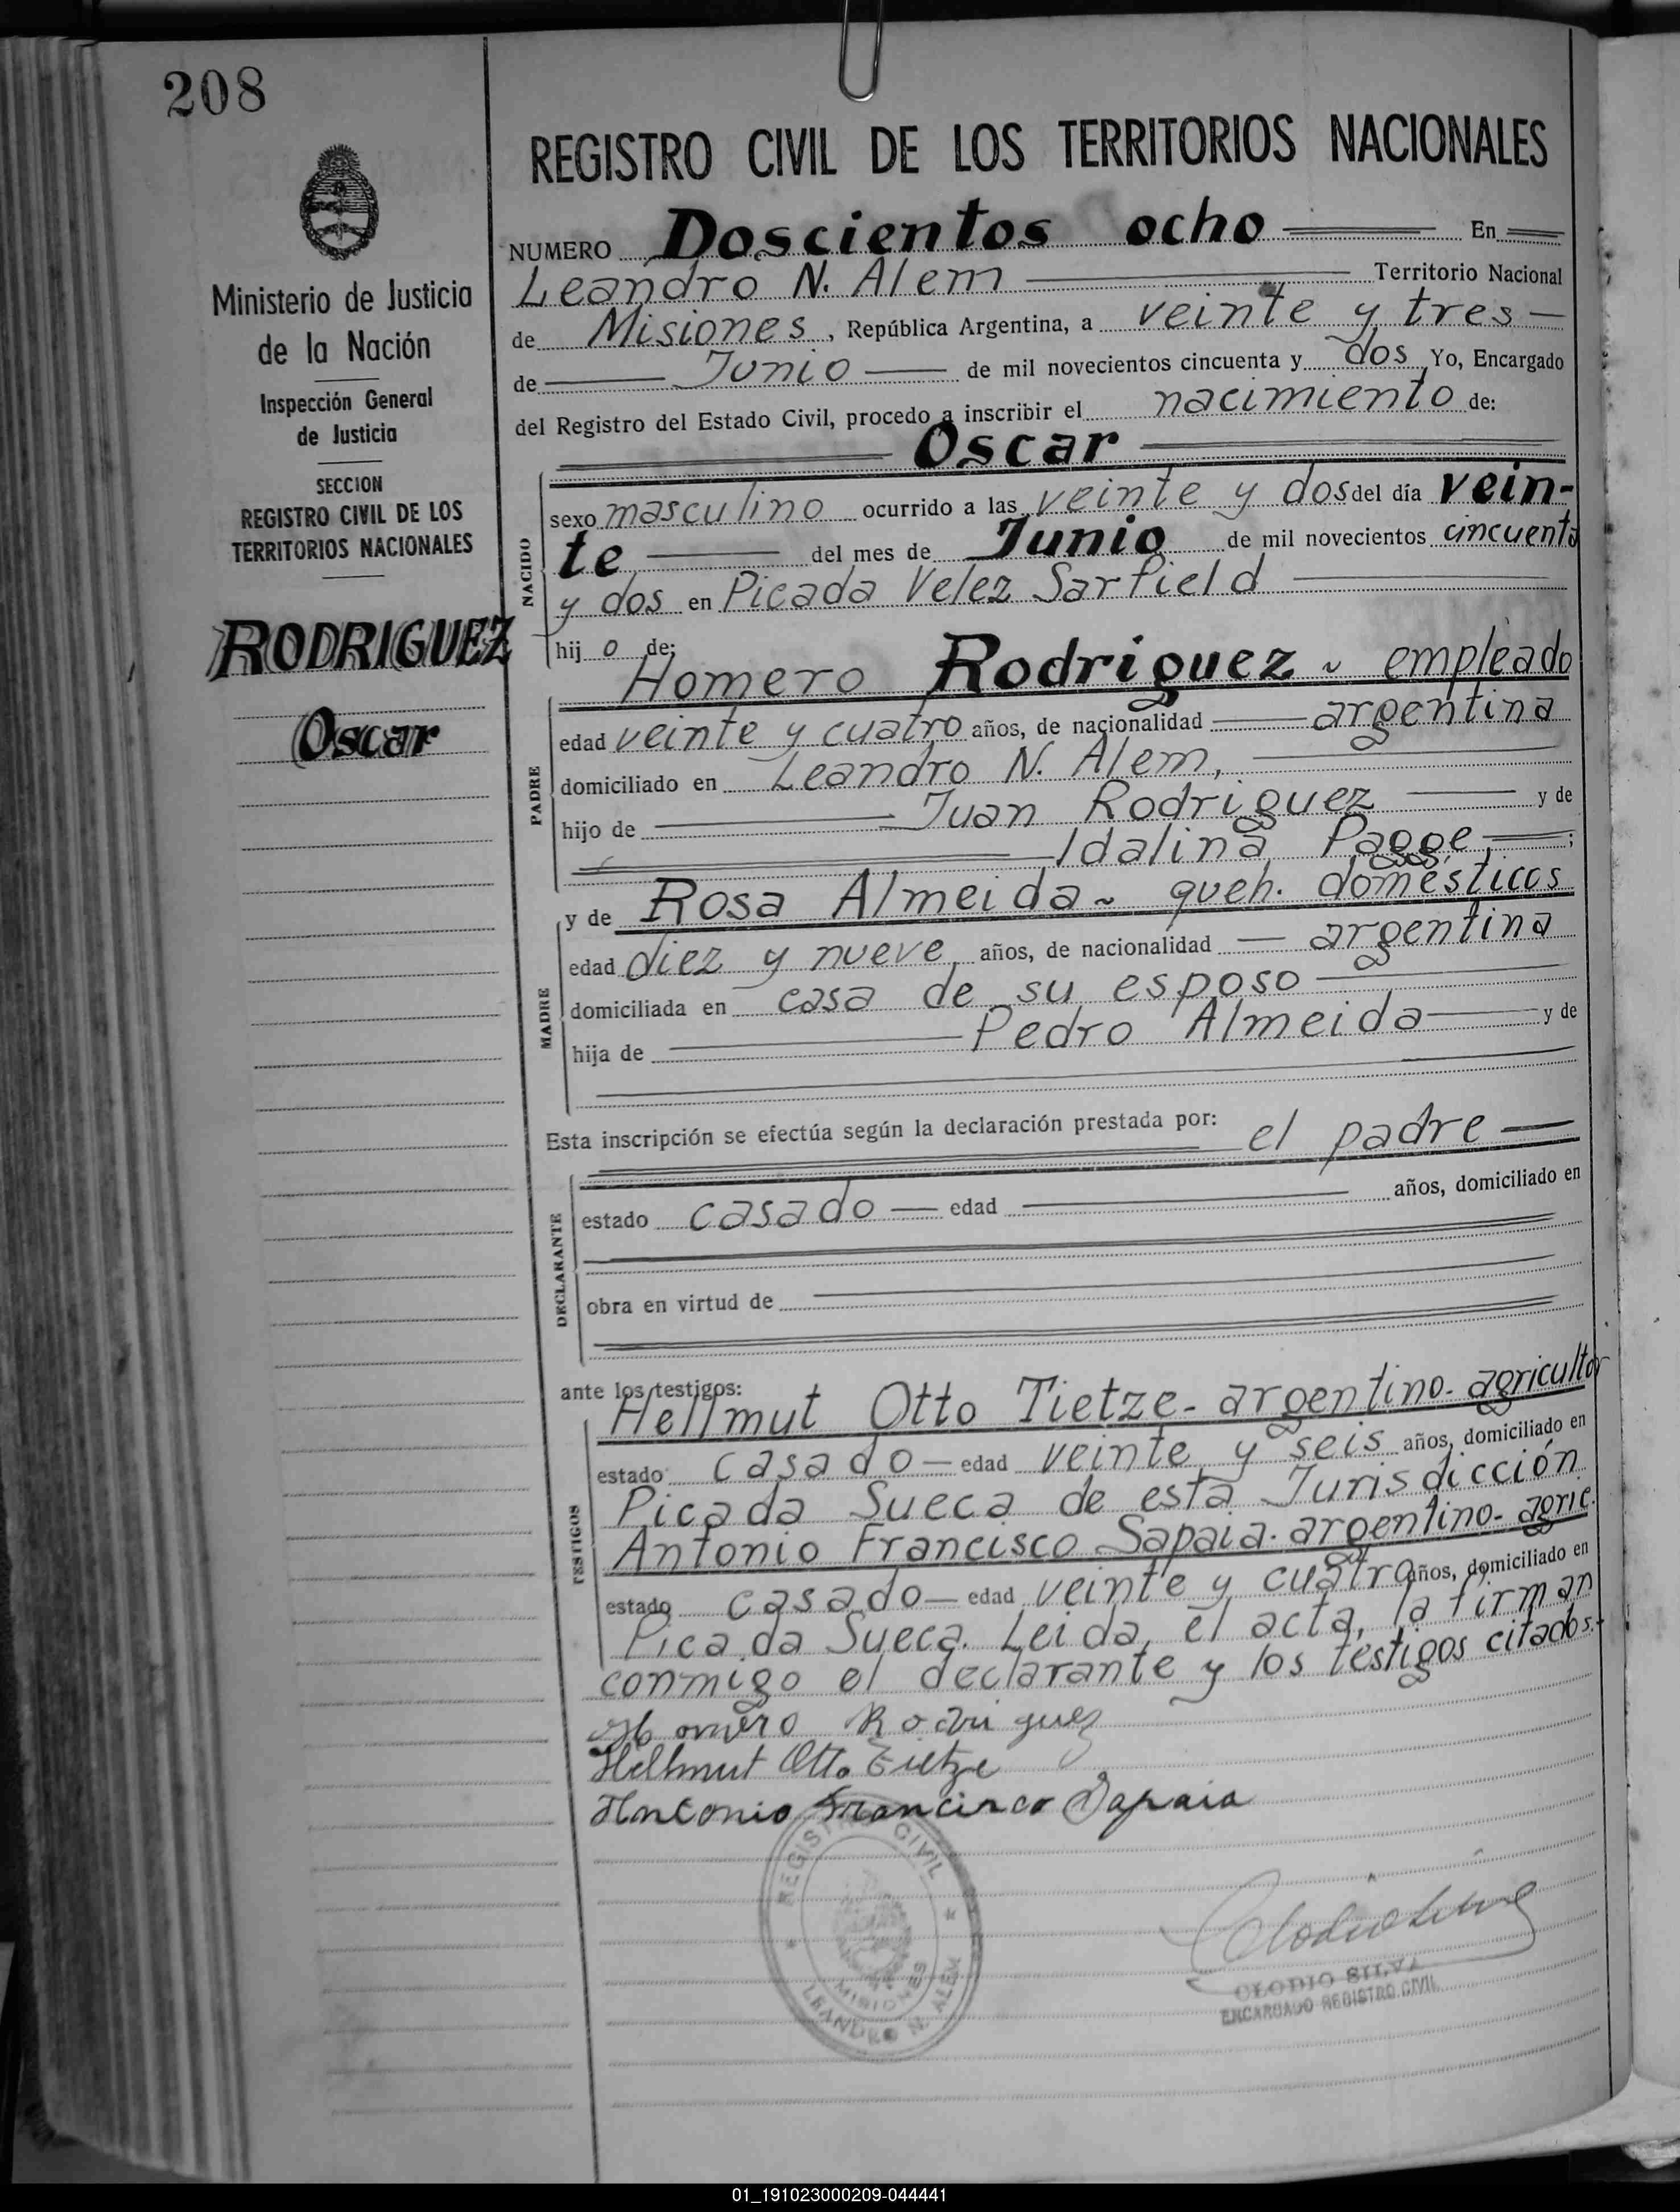 208
Ministerio de Justicia
de la Nación
Inspección General
de Justicia
SECCION
REGISTRO CIVIL DE LOS
TERRITORIOS NACIONALES
RODRIGUEZ
Oscar
REGISTRO CIVIL DE LOS TERRITORIOS NACIONALES
NUMERO Doscientos ocho En
Leandro N. Alem Territorio Nacional
de Misiones, República Argentina, a veinte y tres
de Junio de mil novecientos cincuenta y dos Yo, Encargado
del Registro del Estado Civil, procedo a inscribir el nacimiento de:
Oscar
NACIDO
sexo masculino ocurrido a las veinte y dos del día vein-
te del mes de Junio de mil novecientos cincuenta
y dos en Picada Velez Sarfield
hij o de:
Homero Rodriguez ~ empleado
PADRE
edad veinte y cuatro años, de nacionalidad argentina
domiciliado en Leandro N. Alem,
hijo de Juan Rodriguez y de
Idalina Pagge, ;
MADRE
y de Rosa Almeida ~ queh. domésticos
edad diez y nueve años, de nacionalidad argentina
domiciliada en casa de su esposo
hija de Pedro Almeida y de
Esta inscripción se efectúa según la declaración prestada por: el padre
DECLARANTE
estado casado edad años, domiciliado en
obra en virtud de
ante los testigos:
TESTIGOS
Hellmut Otto Tietze- argentino- agricultor
estado casado edad veinte y seis años, domiciliado en
Picada Sueca de esta Jurisdicción
Antonio Francisco Sapaia- argentino- agric.
estado casado edad veinte y cuatro años, domiciliado en
Picada Sueca. Leida, el acta, la firman
conmigo el declarante y los testigos citados.-
Homero Rodriguez
Hellmut Otto Tietze
Antonio Francisco Sapaia
REGISTRO CIVIL
MISIONES
LEANDRO N. ALEM
Clodio Silva
CLODIO SILVA
ENCARGADO REGISTRO CIVIL
01_191023000209-044441